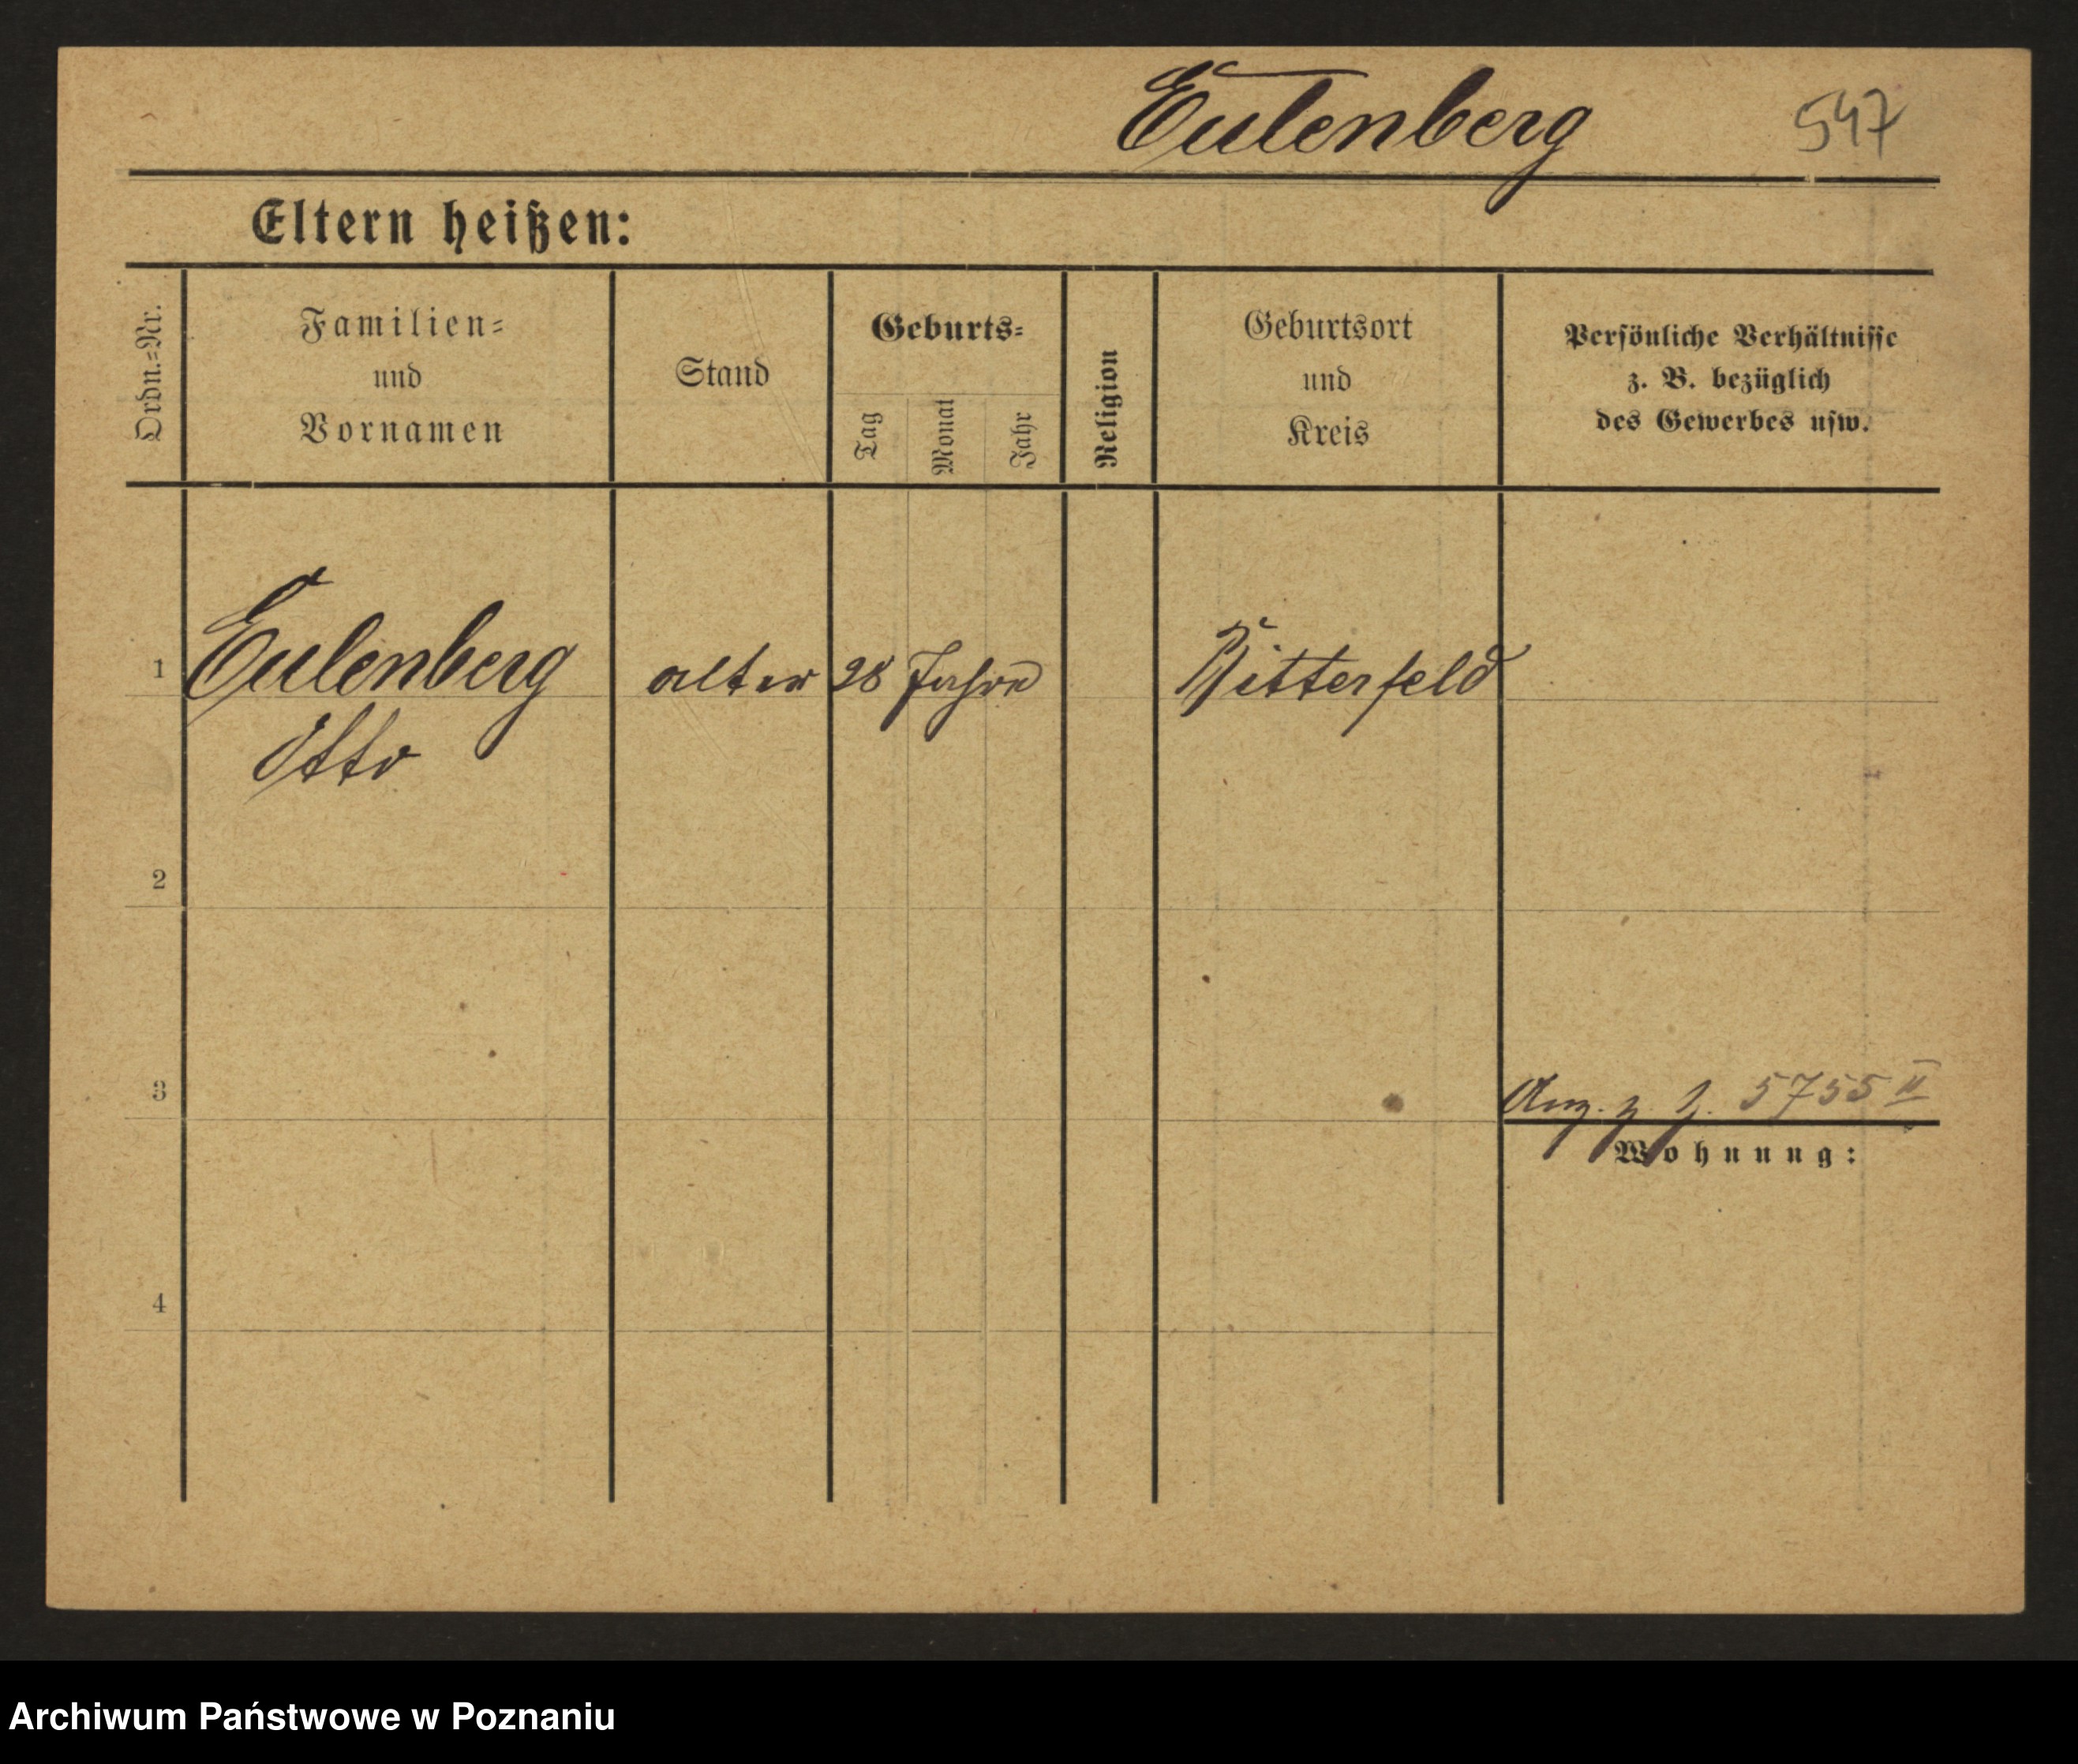 Eulenberg 547
Eltern heißen:
Ordn.=Nr.
Familien=
und
Vornamen
Stand
Geburts=
Tag
Monat
Jahr
Religion
Geburtsort
und
Kreis
Persönliche Verhältnisse
z. B. bezüglich
des Gewerbes usw.
1 Eulenberg alter 28 Jahre Bitterfeld
Otto
2
3
5755 II
Wohnung:
4
Archiwum Państwowe w Poznaniu